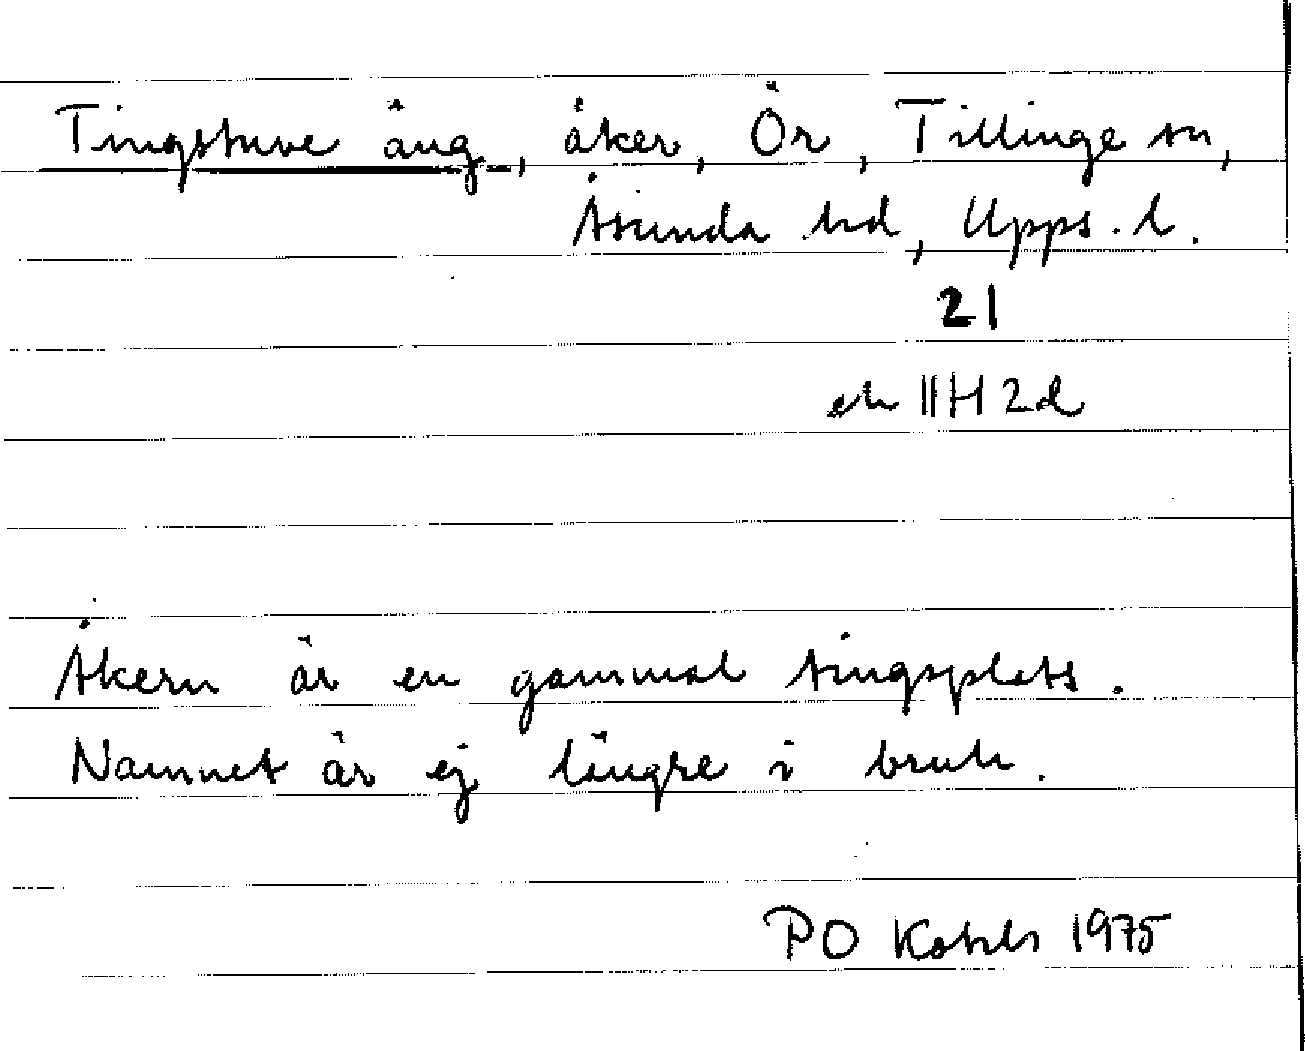 Tingstuve äng, åker, Ör, Tillinge sn,
Åsunda hd, Upps. l.
21
ek 11H 2d
Åkern är en gammal tingsplats.
Namnet är ej längre i bruk.
PO 1975